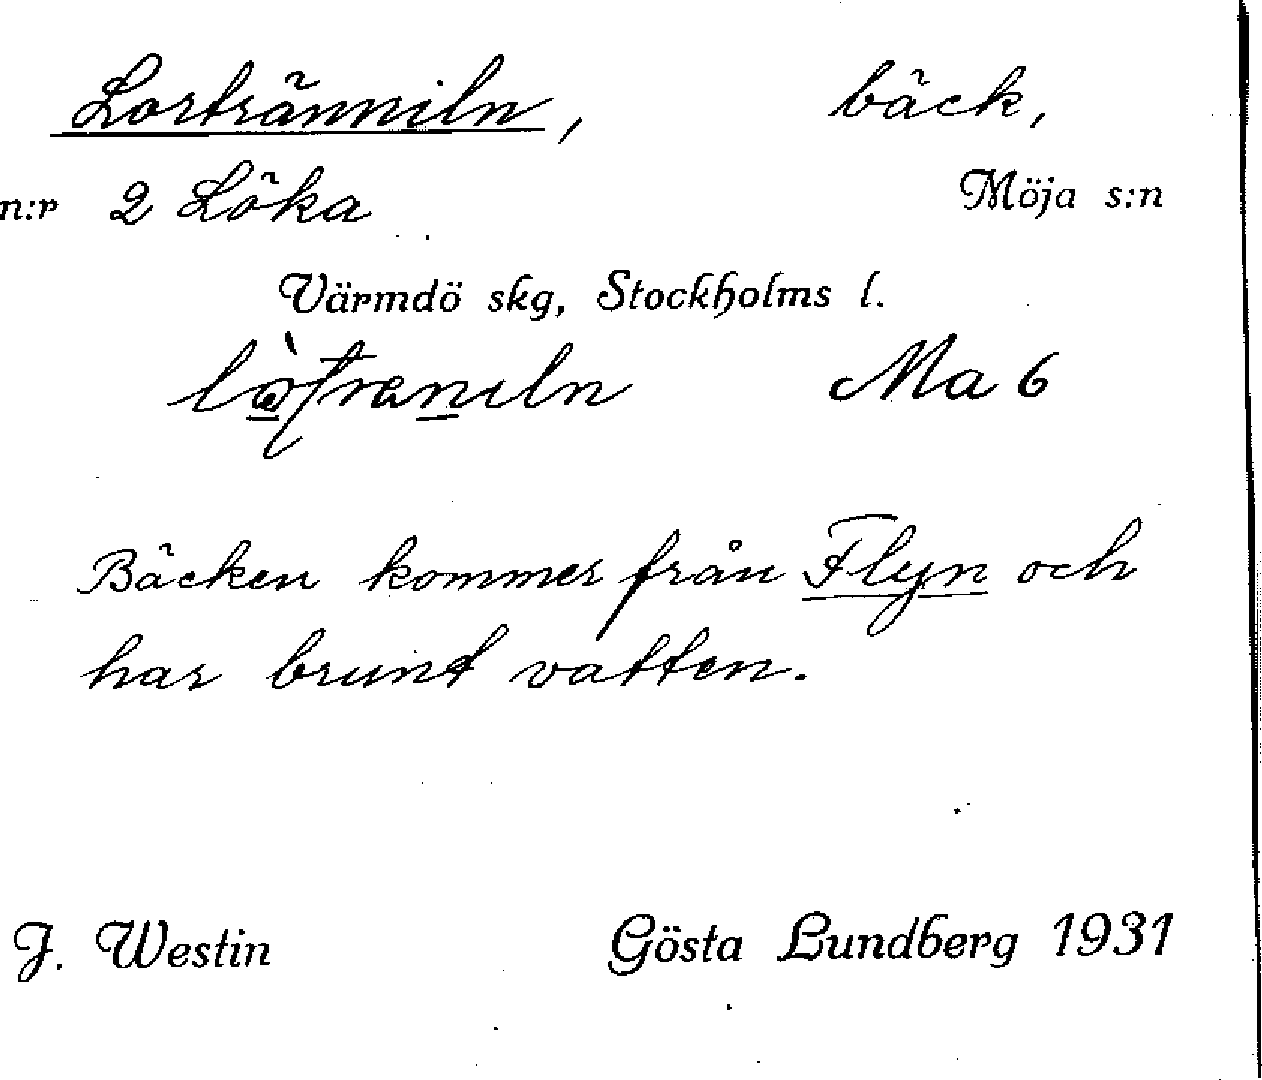 Lortränniln, bäck,
n:r 2 Löka Möja s:n
Värmdö skg, Stockholms l.
Ma 6
Bäcken kommer från Flyn och
har brunt vatten.
J. Westin Gösta Lundberg 1931